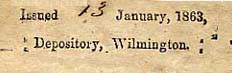 Issued 13 January, 1863,
Depository, Wilmington.